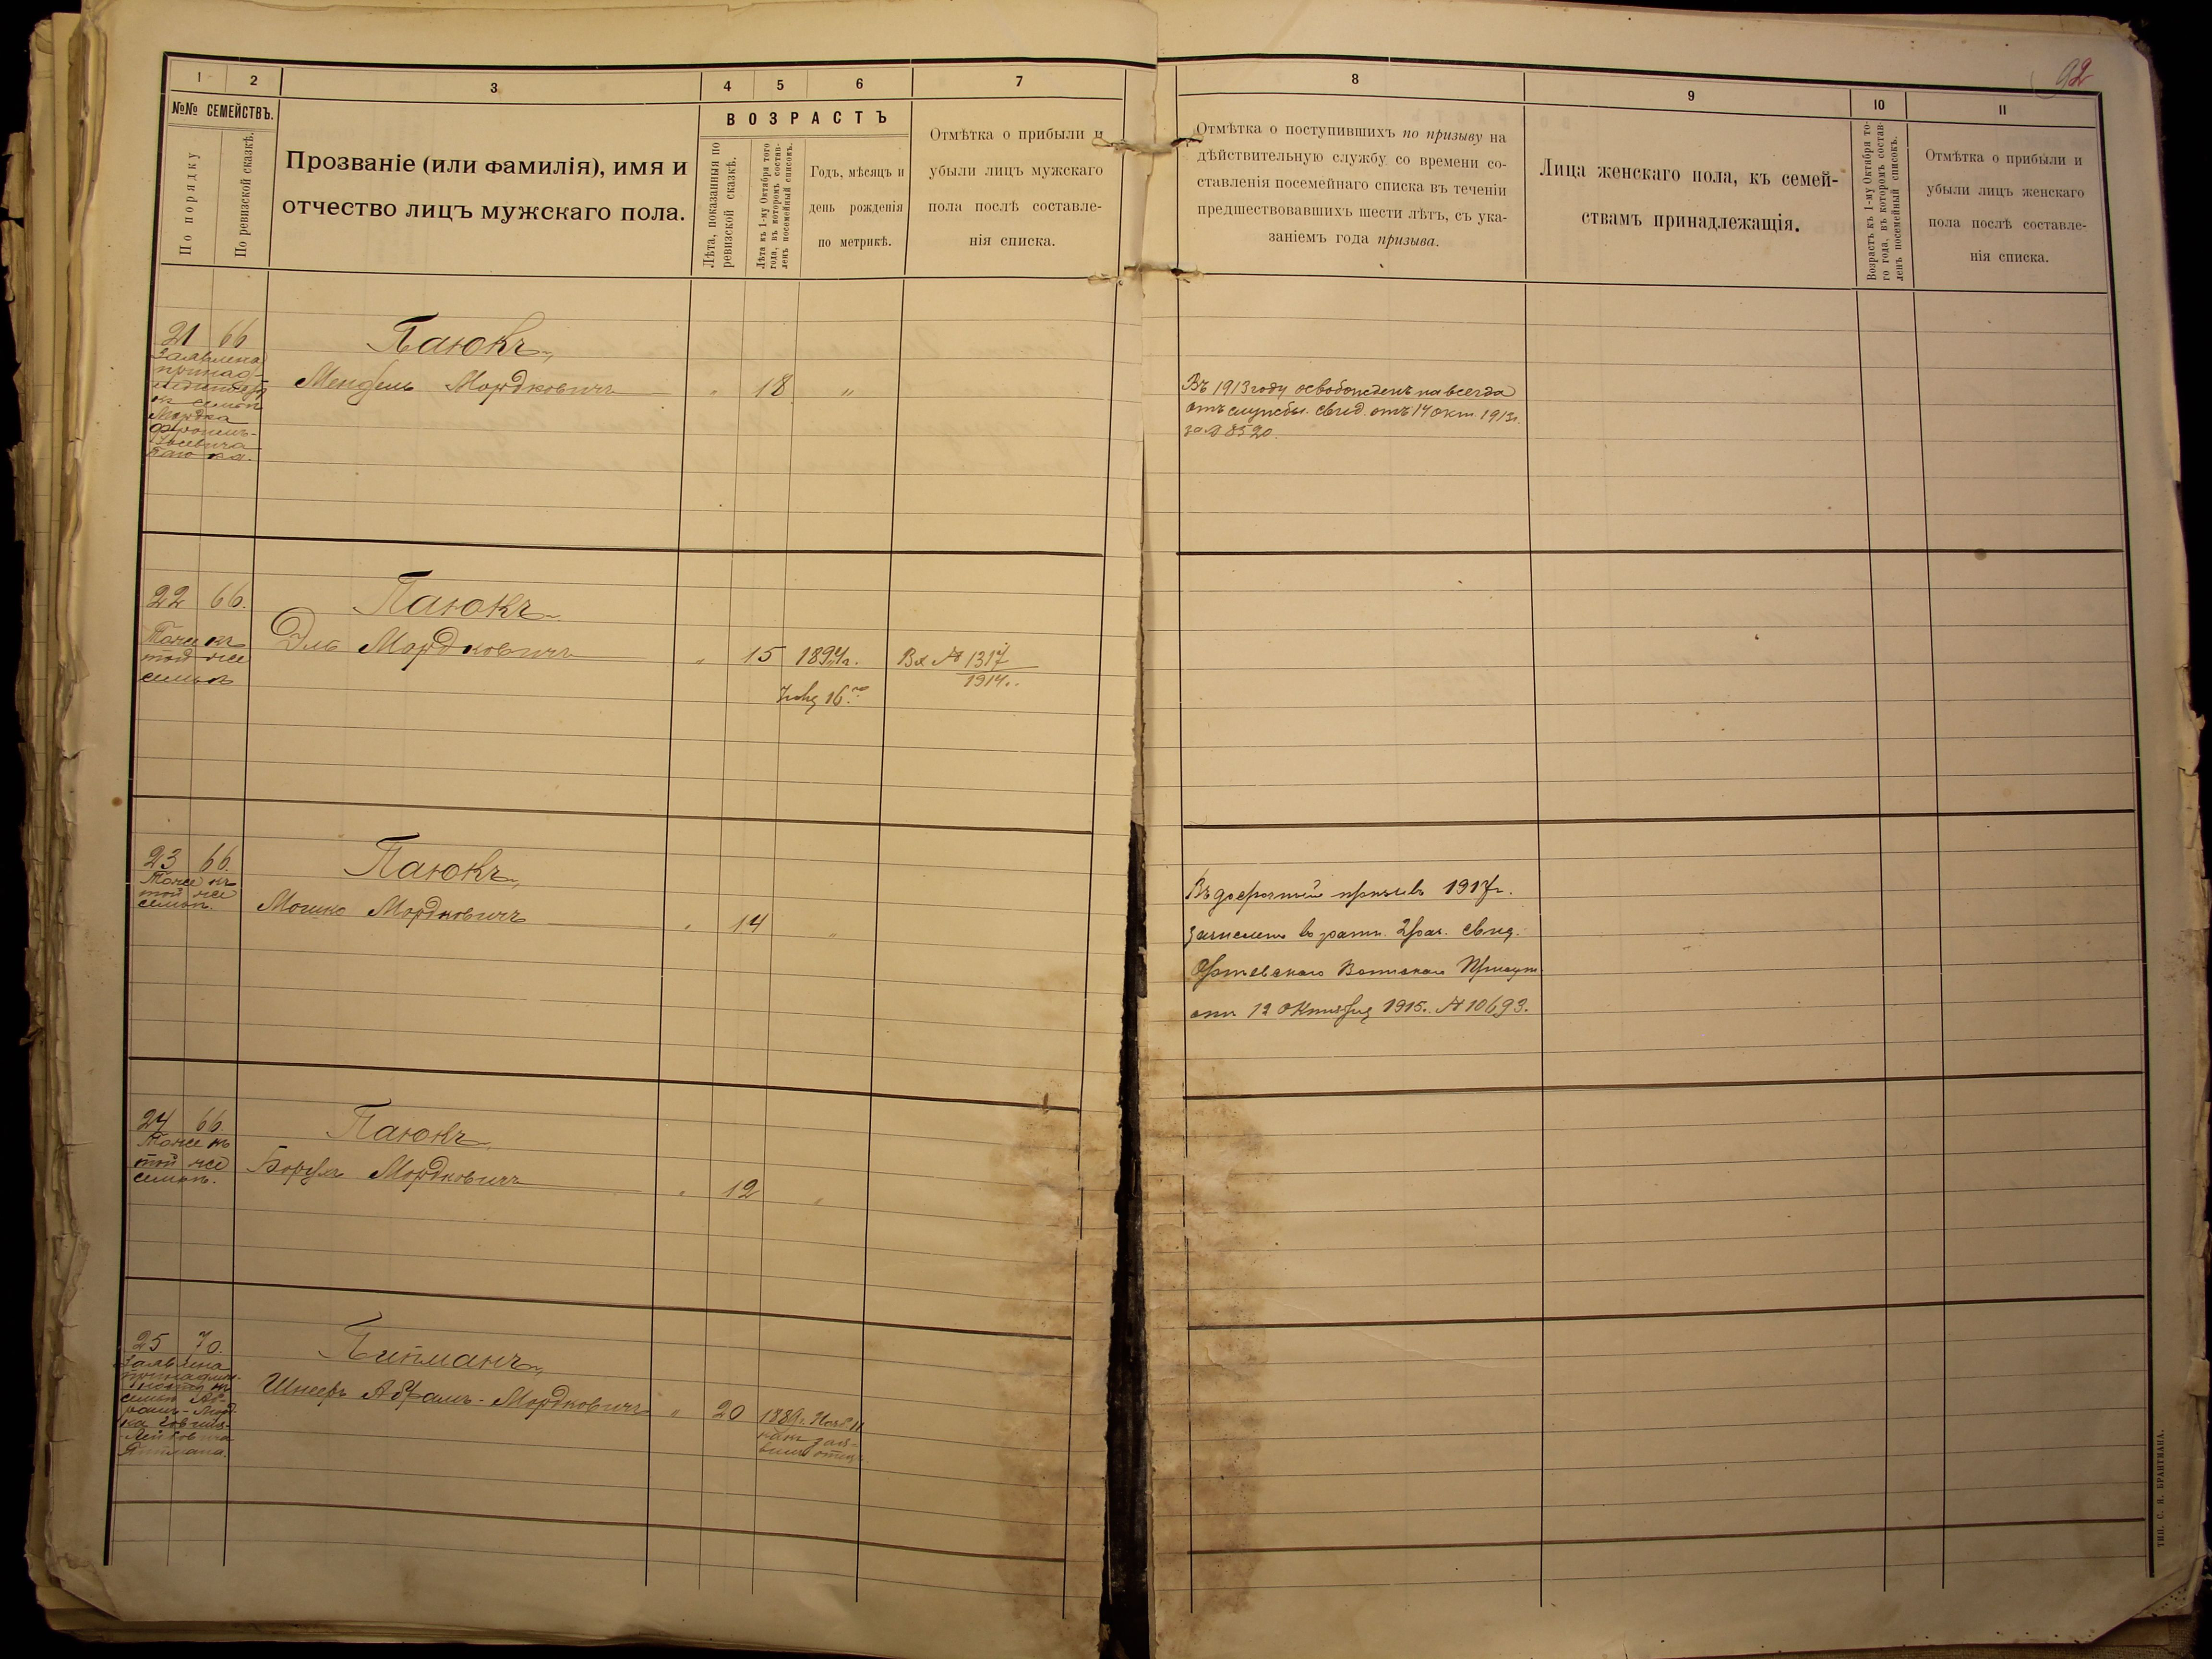 92
1
2
3
4
5
6
7
8
9
10
11
№№ СЕМЕЙСТВЪ.
По порядку
По ревизской сказкѣ.
Прозваніе (или фамилія), имя и
отчество лицъ мужскаго пола.
ВОЗРАСТЪ
Лѣта, показанныя по
ревизской сказкѣ.
Лѣта къ 1-му Октября того
года, въ которомъ состав-
ленъ посемейный списокъ.
Годъ, мѣсяцъ и
день рожденія
по метрикѣ.
Отмѣтка о прибыли и
убыли лицъ мужскаго
пола послѣ составле-
нія списка.
Отмѣтка о поступившихъ по призыву на
дѣйствительную службу со времени со-
ставленія посемейнаго списка въ теченіи
предшествовавшихъ шести лѣтъ, съ ука-
заніемъ года призыва.
Лица женскаго пола, къ семей-
ствамъ принадлежащія.
Возрастъ къ 1-му Октября то-
го года, въ которомъ состав-
ленъ посемейный списокъ.
Отмѣтка о прибыли и
убыли лицъ женскаго
пола послѣ составле-
нія списка.
21 66
Паюкъ
Заявлена
къ семьѣ
Мордка
Паюка.
Мендель Мордковичъ " 18 "
Въ 1913 году освобожденъ навсегда
отъ службы. свид. отъ 14 окт. 1913г.
за № 8520.
22 66.
Паюкъ
Тоже къ
той же
семьѣ
Эль Мордковичъ " 15 1894г.
16го
Вх № 1317
1914г.
23 66.
Паюкъ
Тоже къ
той же
семьѣ.
Мошко Мордковичъ " 14 "
Въ досрочный призывъ 1917г.
зачисленъ въ ратн. 2 раз. свид.
Воинскаго Присут.
отъ 12 Октября 1915г. № 10693.
24 66
Паюкъ
Тоже къ
той же
семьѣ.
Борухъ Мордковичъ " 12 "
25 70.
Заявлена
семьѣ Аб-
рамъ-Морд-
ка
Лейбовича
Шнееръ Абрамъ-Мордковичъ " 20 1889г.
какъ зая-
вилъ отецъ.
ТИП. С. Я. БРАНТМАНА.